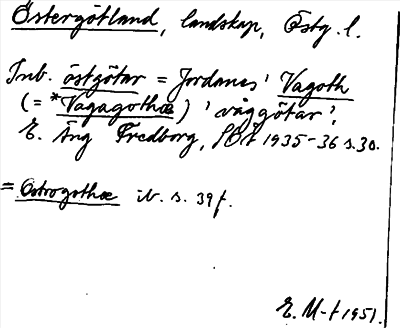 Östergötland, landskap, Östg. l.
Inb. östgötar = Jordanes' Vagoth
(= *Vagagothæ) 'våggötar'.
E. Äng Fredborg, SOÅ 1935-36 s. 30.
= Ostrogothæ ib. s. 39 f.
E. M-t 1951.